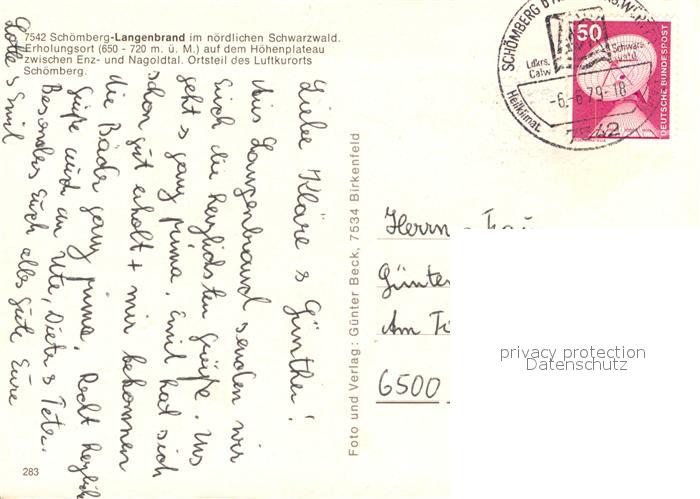 7542 Schömberg-Langenbrand im nördlichen Schwarzwald.
Erholungsort (650 - 720 m. ü. M.) auf dem Höhenplateau
zwischen Enz- und Nagoldtal. Ortsteil des Luftkurorts
Schömberg.
Liebe Kläre & Günther!
Aus Langenbrand senden wir
Euch die herzlichsten Grüße. Uns
geht's ganz prima. Emil hat sich
schon gut erholt + mir bekommen
die Bäder ganz prima. Recht herzliche
Grüße auch an Ute, Dieter & Peter.
Besonders Euch alles Gute Eure
Lotte & Emil
283
Foto und Verlag: Günter Beck, 7534 Birkenfeld
SCHÖMBERG
Ldkrs.
Calw
Schwarz-
wald
Heilklimat.
-6.-6.79-18
7542
50
DEUTSCHE BUNDESPOST
Herrn & Frau
Günter
Am
6500
privacy protection
Datenschutz